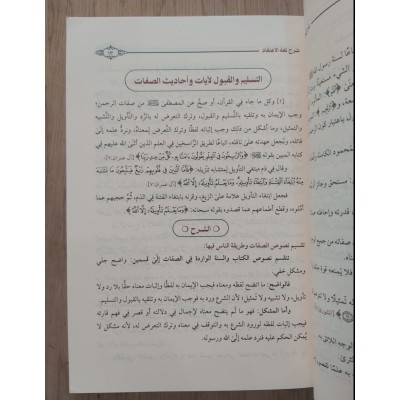 شرح لمعة الاعتقاد
التسليم والقبول لآيات وأحاديث الصفات
[٤] وكل ما جاء في القرآن، أو صحَّ عن المصطفى ﷺ من صفات الرحمن؛
وجب الإيمان به وتلقيه بالتَّسليم والقبول، وترك التعرض له بالرَّدِّ والتأويل، والتَّشبيه
والتمثيل، وما أشكل من ذلك وجب إثباته لفظًا وترك التعرض لمعناه، ونردُّ علمه إلى
قائله، ونجعل عهدته على ناقله، اتباعًا لطريق الراسخين في العلم الذين أثنى الله عليهم في
كتابه المبين بقوله ﷻ: ﴿وَالرَّاسِخُونَ فِي الْعِلْمِ يَقُولُونَ آمَنَّا بِهِ كُلٌّ مِنْ عِنْدِ رَبِّنَا﴾ [آل عمران: ٧].
وقال في ذم مبتغي التأويل لمتشابه تنزيله: ﴿فَأَمَّا الَّذِينَ فِي قُلُوبِهِمْ زَيْغٌ فَيَتَّبِعُونَ مَا تَشَابَهَ
مِنْهُ ابْتِغَاءَ الْفِتْنَةِ وَابْتِغَاءَ تَأْوِيلِهِ وَمَا يَعْلَمُ تَأْوِيلَهُ إِلَّا اللَّهُ﴾ [آل عمران: ٧].
فجعل ابتغاء التأويل علامة على الزيغ، وقرنه بابتغاء الفتنة في الذم، ثم حجبهم عما
أملوه، وقطع أطماعهم عما قصدوه بقوله سبحانه: ﴿وَمَا يَعْلَمُ تَأْوِيلَهُ إِلَّا اللَّهُ﴾.
الشرح
تقسيم نصوص الصفات وطريقة الناس فيها:
تنقسم نصوص الكتاب والسنة الواردة في الصفات إلى قسمين: واضح جلي
ومشكل خفي.
فالواضح: ما اتضح لفظه ومعناه فيجب الإيمان به لفظًا وإثبات معناه حقًّا بلا رد ولا
تأويل، ولا تشبيه ولا تمثيل؛ لأن الشرع ورد به فوجب الإيمان به وتلقيه بالقبول والتسليم.
وأما المشكل: فهو ما لم يتضح معناه لإجمال في دلالته أو قصر في فهم قارئه
فيجب إثبات لفظه لورود الشرع به والتوقف في معناه وترك التعرض له، لأنه مشكل لا
يُمكن الحكم عليه فنرد علمه إلى الله ورسوله.